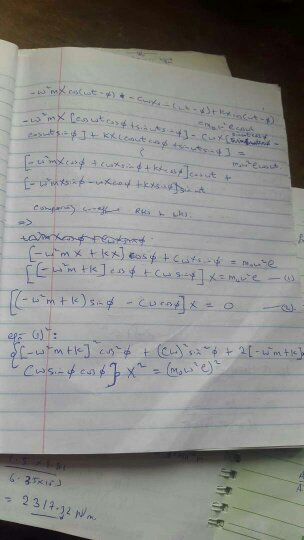 -ω²mX cos(ωt-φ) - cωX sin(ωt-φ) + kX cos(ωt-φ)
= m₀ω²e cosωt
-ω²mX [cosωt cosφ + sinωt sinφ] - cωX [sinωt cosφ -
cosωt sinφ] + kX [cosωt cosφ + sinωt sinφ] =
m₀ω²e cosωt
[-ω²mX cosφ + cωX sinφ + kX cosφ] cosωt +
[-ω²mX sinφ - cωX cosφ + kX sinφ] sinωt
Comparing coeff RHS & LHS.
=>
[-ω²mX + kX] cosφ + cωX sinφ = m₀ω²e
[[-ω²m + k] cosφ + cω sinφ] X = m₀ω²e — (1)
[(-ω²m + k) sinφ - cω cosφ] X = 0 — (2)
eqn (1)²:
{[-ω²m + k]² cos²φ + (cω)² sin²φ + 2[-ω²m + k]
cω sinφ cosφ} X² = (m₀ω²e)²
= 2317.32 N/m